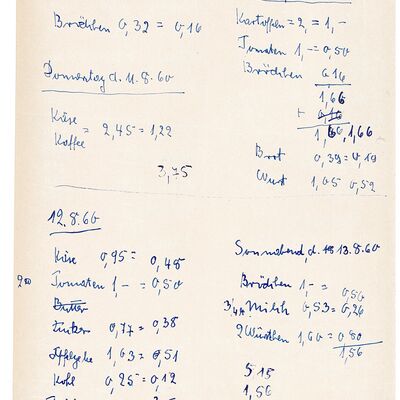 Brödchen 0,32 = 0,16
Donnerstag d. 11.8.60
Käse
Kaffee = 2,45 = 1,22
3,75
12.8.60
Käse 0,95 = 0,48
Tomaten 1,- = 0,50
Butter
Zucker 0,77 = 0,38
1,03 = 0,51
Kohl 0,25 = 0,12
Kartoffen = 2,- = 1,-
Tomaten 1,- = 0,50
Brödchen 0,16
1,66
1,66
Brot 0,39 = 0,19
Wurst 1,05 0,52
Sonnabend, d. 13.8.60
Brödchen 1,- = 0,50
Milch 0,53 = 0,26
2 Würstchen 1,60 = 0,80
1,56
5 18
1,56